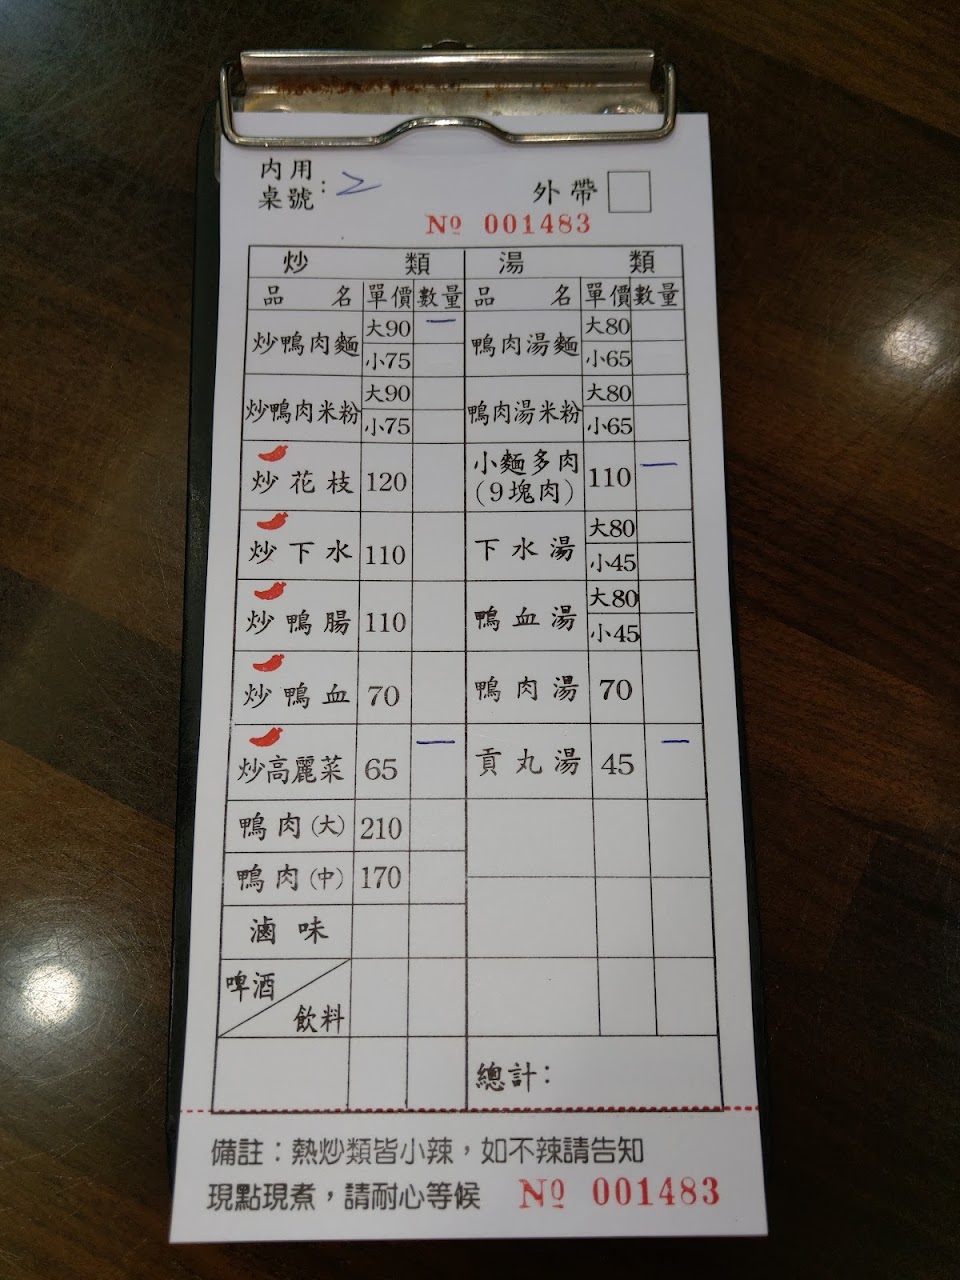 內用
桌號：2
外帶
Nº 001483
炒類 湯類
品名 單價 數量 品名 單價 數量
炒鴨肉麵 大90 一 鴨肉湯麵 大80
小75 小65
炒鴨肉米粉 大90 鴨肉湯米粉 大80
小75 小65
炒花枝 120 小麵多肉(9塊肉) 110 一
炒下水 110 下水湯 大80
小45
炒鴨腸 110 鴨血湯 大80
小45
炒鴨血 70 鴨肉湯 70
炒高麗菜 65 一 貢丸湯 45 一
鴨肉(大) 210
鴨肉(中) 170
滷味
啤酒
飲料
總計：
備註：熱炒類皆小辣，如不辣請告知
現點現煮，請耐心等候 Nº 001483